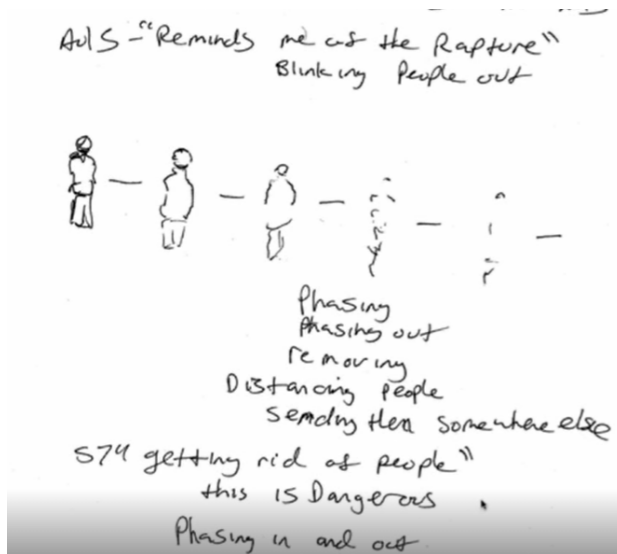 AOLS - "Reminds me of the Rapture"
Blinking People out
Phasing
Phasing out
removing
Distancing People
Sending them somewhere else
S74 getting rid of people"
this is Dangerous
Phasing in and out